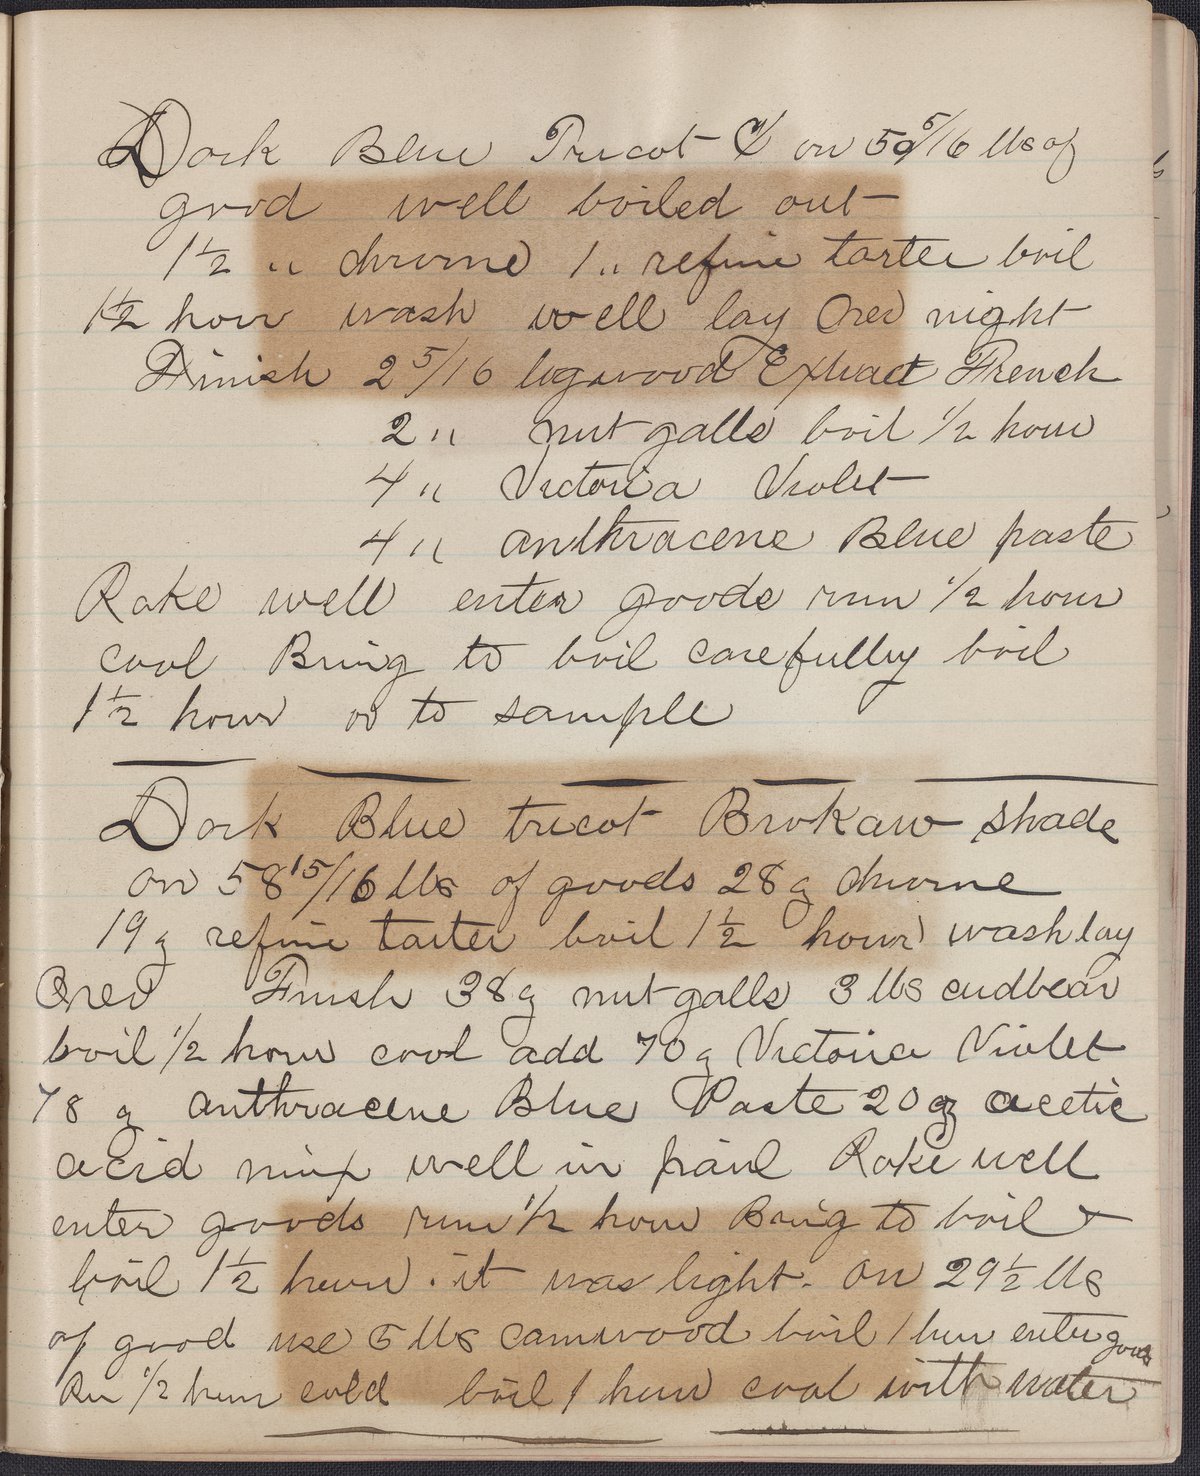 Dark Blue Tricot on 59 5/16 lbs of
good well boiled out
1 1/2 " chrome 1 " refine tarter boil
1 1/2 hour wash well lay Over night
Finish 2 5/16 logwood Extract French
2 " nut galls boil 1/2 hour
4 " Victoria Violet
4 " anthracene Blue paste
Rake well enter goods run 1/2 hour
cool Bring to boil carefully boil
1 1/2 hour or to sample
Dark Blue tricot Brokaw shade
on 58 15/16 lbs of goods 28 g chrome
19 g refine tarter boil 1 1/2 hour wash lay
Over Finish 38 g nut galls 3 lbs cudbear
boil 1/2 hour cool add 70 g Victoria Violet
78 g anthracene Blue Paste 20 g acetic
acid mix well in pail Rake well
enter goods run 1/2 hour Bring to boil &
boil 1 1/2 hour. it was light. on 29 1/2 lbs
of good use 5 lbs camwood boil 1 hour enter goods
Run 1/2 hour cold boil 1 hour cool with water